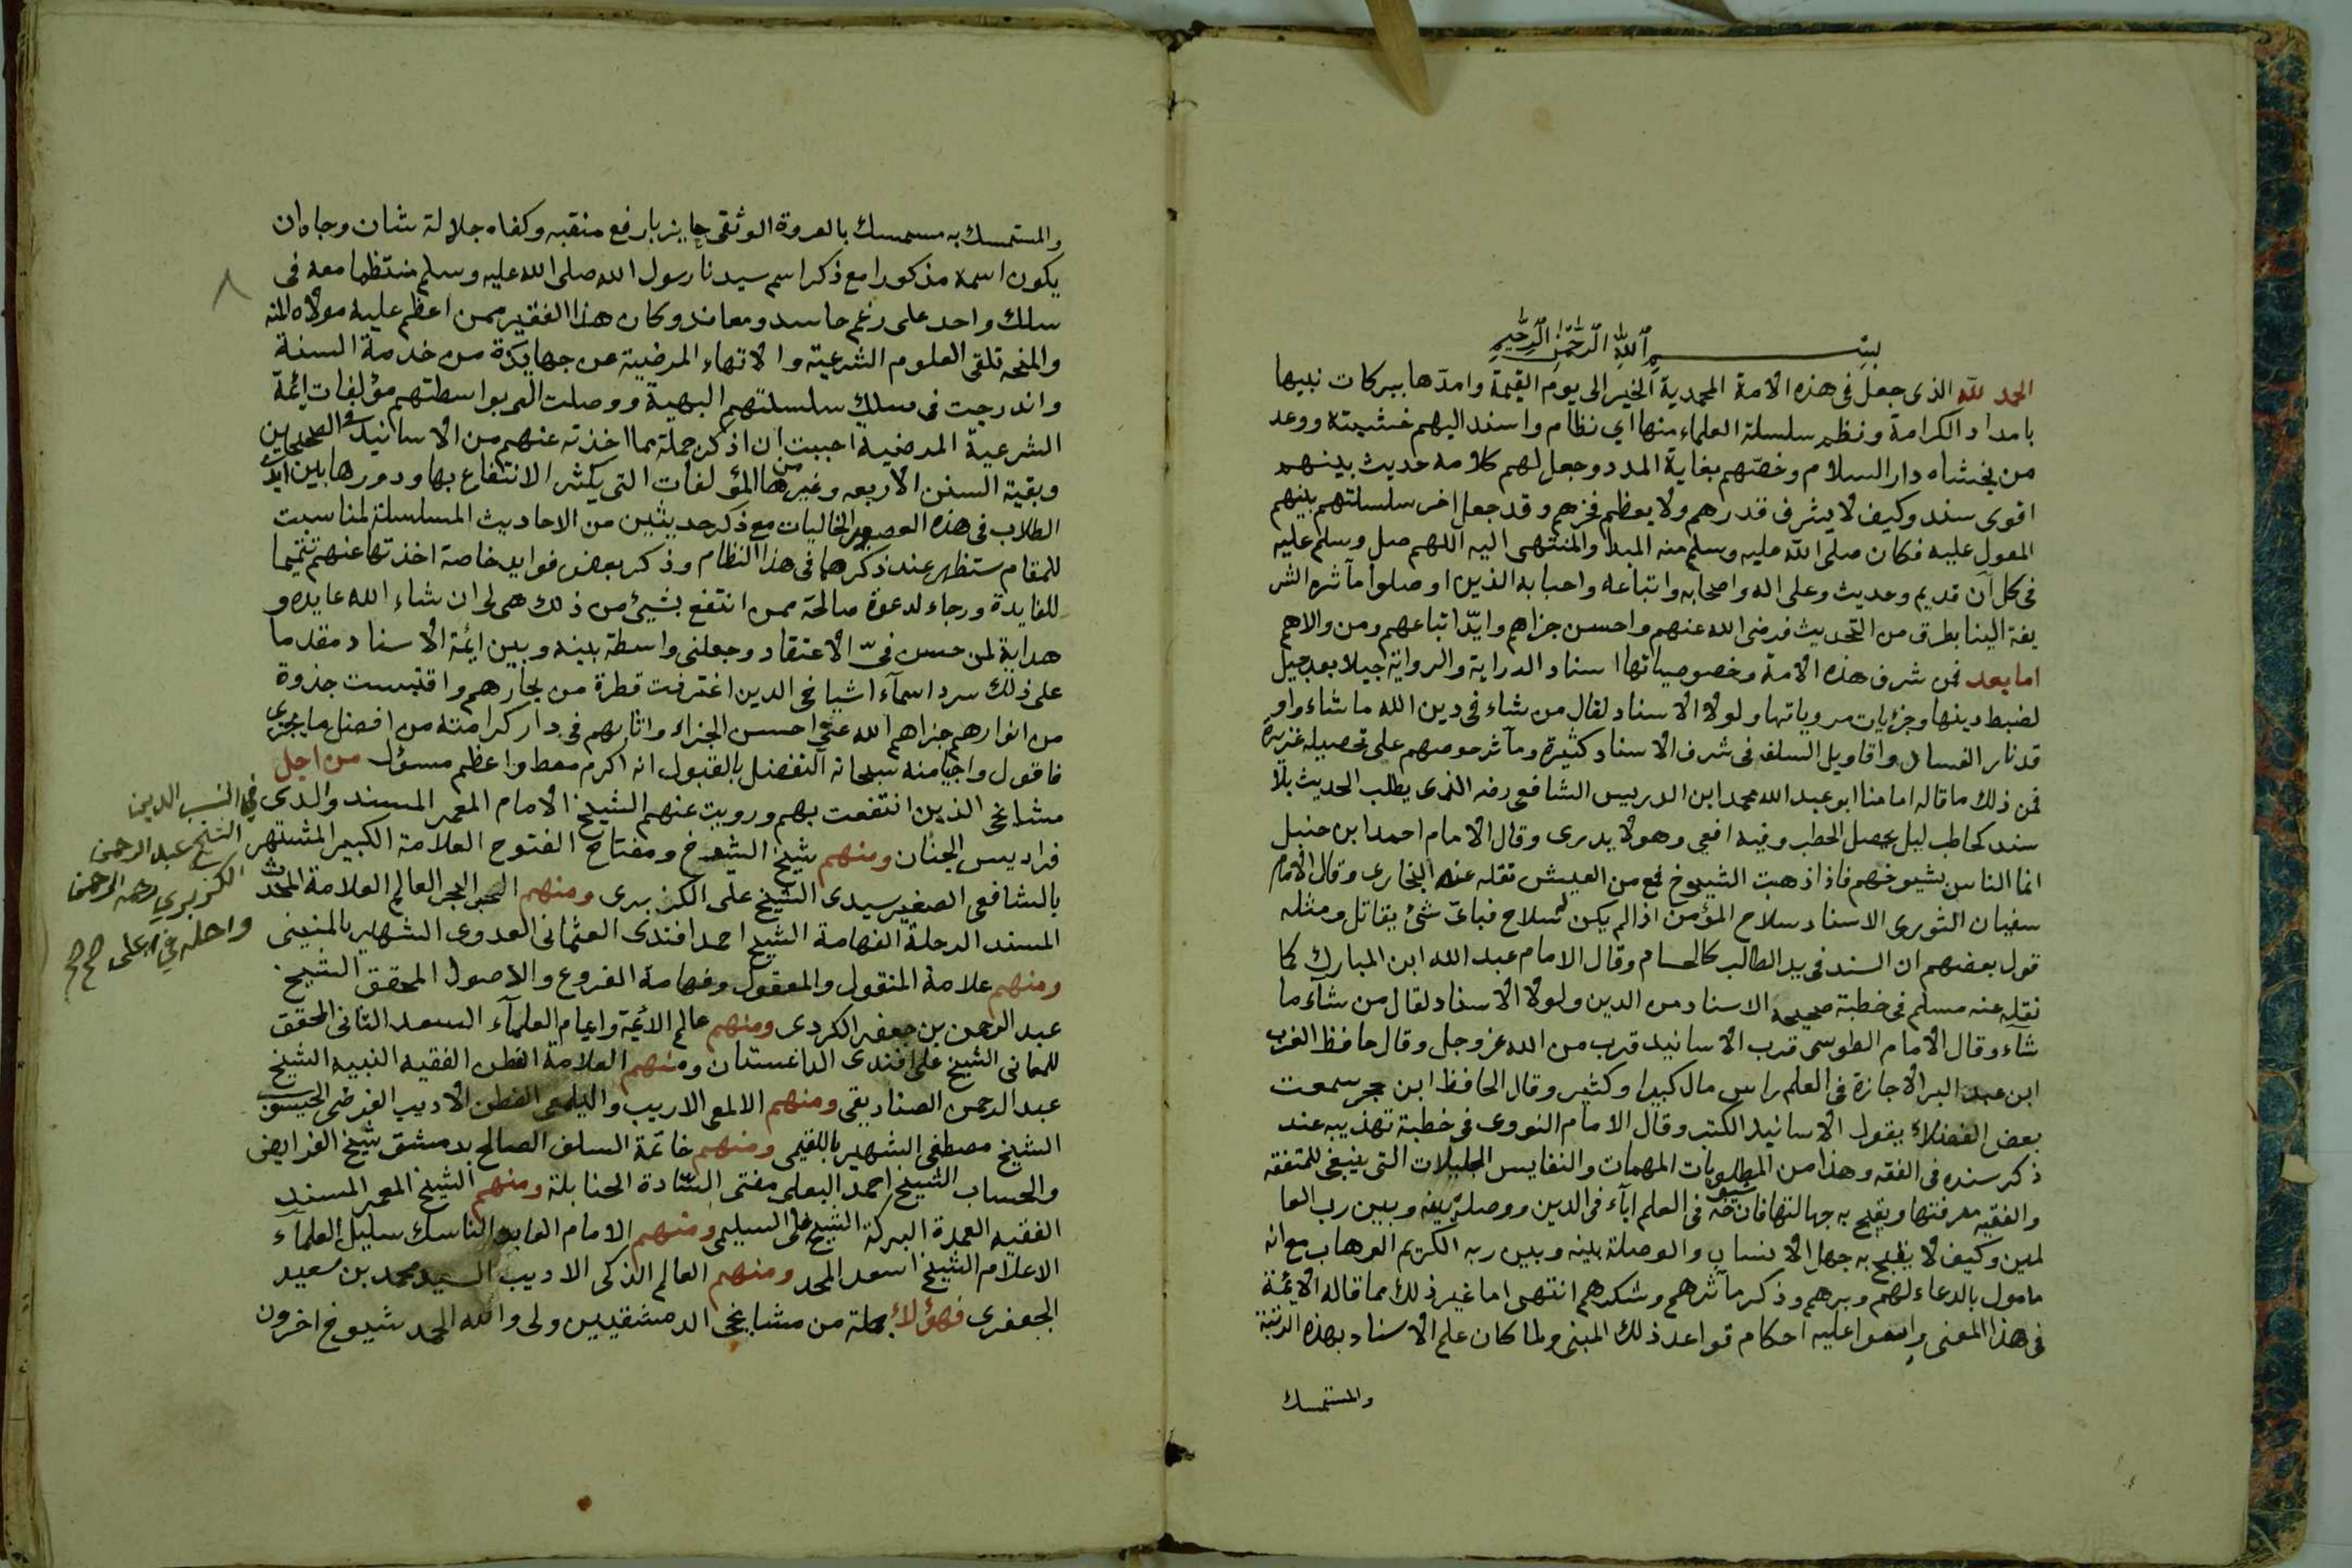 بسم الله الرحمن الرحيم
الحمد لله الذى جعل فى هذه الامة المحمدية الخير الى يوم القيمة وامدها ببركات نبيها
بامداد الكرامة ونظم سلسلة العلماء منها اي نظام واسند اليهم خشيته ووعد
من يخشاه دار السلام وخصهم بغاية المدد وجعل لهم كلامه حديث بينهم
اقوى سند وكيف لا يشرف قدرهم ولا يعظم فخرهم وقد جعل اخر سلسلتهم بينهم
المعول عليه فكان صلى الله عليه وسلم منه المبدا والمنتهى اليه اللهم صل وسلم عليه
فى كل آن قديم وحديث وعلى اله واصحابه واتباعه واحبابه الذين اوصلوا مآثره الشر
يفة الينا بطرق من التحديث فرضى الله عنهم واحسن جزاهم وايد اتباعهم ومن والاهم
اما بعد فمن شرف هذه الامة وخصوصياتها اسناد الدراية والرواية جيلا بعد جيل
لضبط دينها وجزئيات مروياتها ولولا الاسناد لقال من شاء فى دين الله ما شاء واو
قد نار الفساد واقاويل السلف فى شرف الاسناد كثيرة ومآثر حرصهم على تحصيله غزيرة
فمن ذلك ما قاله امامنا ابو عبد الله محمد ابن ادريس الشافعى رضه الذى يطلب الحديث بلا
سند كحاطب ليل يحصل الحطب وفيه افعي وهو لا يدرى وقال الامام احمد ابن حنبل
انما الناس بشيوخهم فاذا ذهبت الشيوخ فمع من العيش نقله عنه البخارى وقال الامام
سفيان الثورى الاسناد سلاح المؤمن اذا لم يكن له سلاح فباى شئ يقاتل ومثله
قول بعضهم ان السند فى يد الطالب كالحسام وقال الامام عبد الله ابن المبارك كما
نقله عنه مسلم فى خطبة صحيحه الاسناد من الدين ولولا الاسناد لقال من شآء ما
شآء وقال الامام الطوسى قرب الاسانيد قرب من الله عز وجل وقال حافظ الغرب
ابن عبد البر الاجازة فى العلم راس مال كبيرا وكثير وقال الحافظ ابن حجر سمعت
بعض الفضلاء يقول الاسانيد الكتب وقال الامام النووى فى خطبة تهذيبه عند
ذكر سنده فى الفقه وهذا من المطلوبات المهمات والنفايس الجليلات التى ينبغى للمتفقه
والفقيه معرفتها ويقبح به جهالتها فان شيوخه فى العلم ابآء فى الدين ووصلة بينه وبين رب العا
لمين وكيف لا يقبح به جهل الانساب والوصلة بينه وبين ربه الكريم الوهاب مع انه
مامول بالدعاء لهم وبرهم وذكر مآثرهم وشكرهم انتهى اما غير ذلك مما قاله الائمة
فى هذا المعنى واسسوا عليه احكام قواعد ذلك المبنى ولما كان علم الاسناد بهذه الرتبة
والمستمسك
والمستمسك به مستمسك بالعروة الوثقى حايز بارفع منقبه وكفاه جلالة شان وجاه ان
يكون اسمه مذكورا مع ذكر اسم سيدنا رسول الله صلى الله عليه وسلم منتظما معه فى
سلك واحد على رغم حاسد ومعاند وكان هذا الفقير ممن اعظم عليه مولاه المنه
والمنحه تلقى العلوم الشرعية والانتهاء المرضية عن جهابذة من خدمة السنة
واندرجت فى سلك سلسلتهم البهية ووصلت الي بواسطتهم مؤلفات ائمة
الشرعية المرضية احببت ان اذكر جملة مما اخذته عنهم من الاسانيد فى الصحيحين
وبقية السنن الاربعه وغيرها من المؤلفات التى يكثر الانتفاع بها ودورها بين ايدى
الطلاب فى هذه العصور الخاليات مع ذكر حديثين من الاحاديث المسلسلة لمناسبت
للمقام ستظهر عند ذكرهما فى هذا النظام وذكر بعض فوايد خاصة اخذتها عنهم تتميما
للفايدة ورجاء لدعوة صالحة ممن انتفع بشيئ من ذلك هى لى ان شاء الله عايده و
هداية لمن حسن فىّ الاعتقاد وجعلنى واسطة بينه وبين ائمة الاسناد مقدما
على ذلك سرد اسمآء اشياخى الدين اغترفت قطرة من بحارهم واقتبست جذوة
من انوارهم جزاهم الله عنى احسن الجزاء واثابهم فى دار كرامته من افضل ما يجزى
فاقول واجيا منه سبحانه التفضل بالقبول انه اكرم معط واعظم مسؤل من اجل
مشايخى الذين انتفعت بهم ورويت عنهم الشيخ الامام المعمر المسند والدى
فى النسب الدين
الشيخ عبد الرحمن
الكزبري رحمه الرحمن
واحله في اعلى
فراديس الجنان ومنهم شيخ الشيوخ ومفتاح الفتوح العلامة الكبير المشتهر
بالشافعى الصغير سيدى الشيخ على الكزبرى ومنهم الحبر البحر العالم العلامة المحدث
المسند الرحلة الفهامة الشيخ احمد افندى العثمانى العدوى الشهير بالمنينى
ومنهم علامة المنقول والمعقول وفهامة الفروع والاصول المحقق الشيخ
عبد الرحمن بن جعفر الكردى ومنهم عالم الائمة وامام العلمآء السعد الثانى المحقق
للمعانى الشيخ على افندى الداغستان ومنهم العلامة الفطن الفقيه النبيه الشيخ
عبد الرحمن الصناديقى ومنهم الالمع الاريب واليلمعى الفطن الاديب الفرضى الحيسوبى
الشيخ مصطفى الشهير باللقيمى ومنهم خاتمة السلف الصالح بدمشق شيخ الفرايض
والحساب الشيخ احمد البعلى مفتى السادة الحنابلة ومنهم الشيخ المعمر المسند
الفقيه العمدة البركة الشيخ على السليمى ومنهم الامام العابد الناسك سليل العلمآء
الاعلام الشيخ اسعد المجلد ومنهم العالم الذكى الاديب السيد محمد بن سعيد
الجعفرى فهؤلاء جملة من مشايخى الدمشقيين ولى والله الحمد شيوخ اخرون